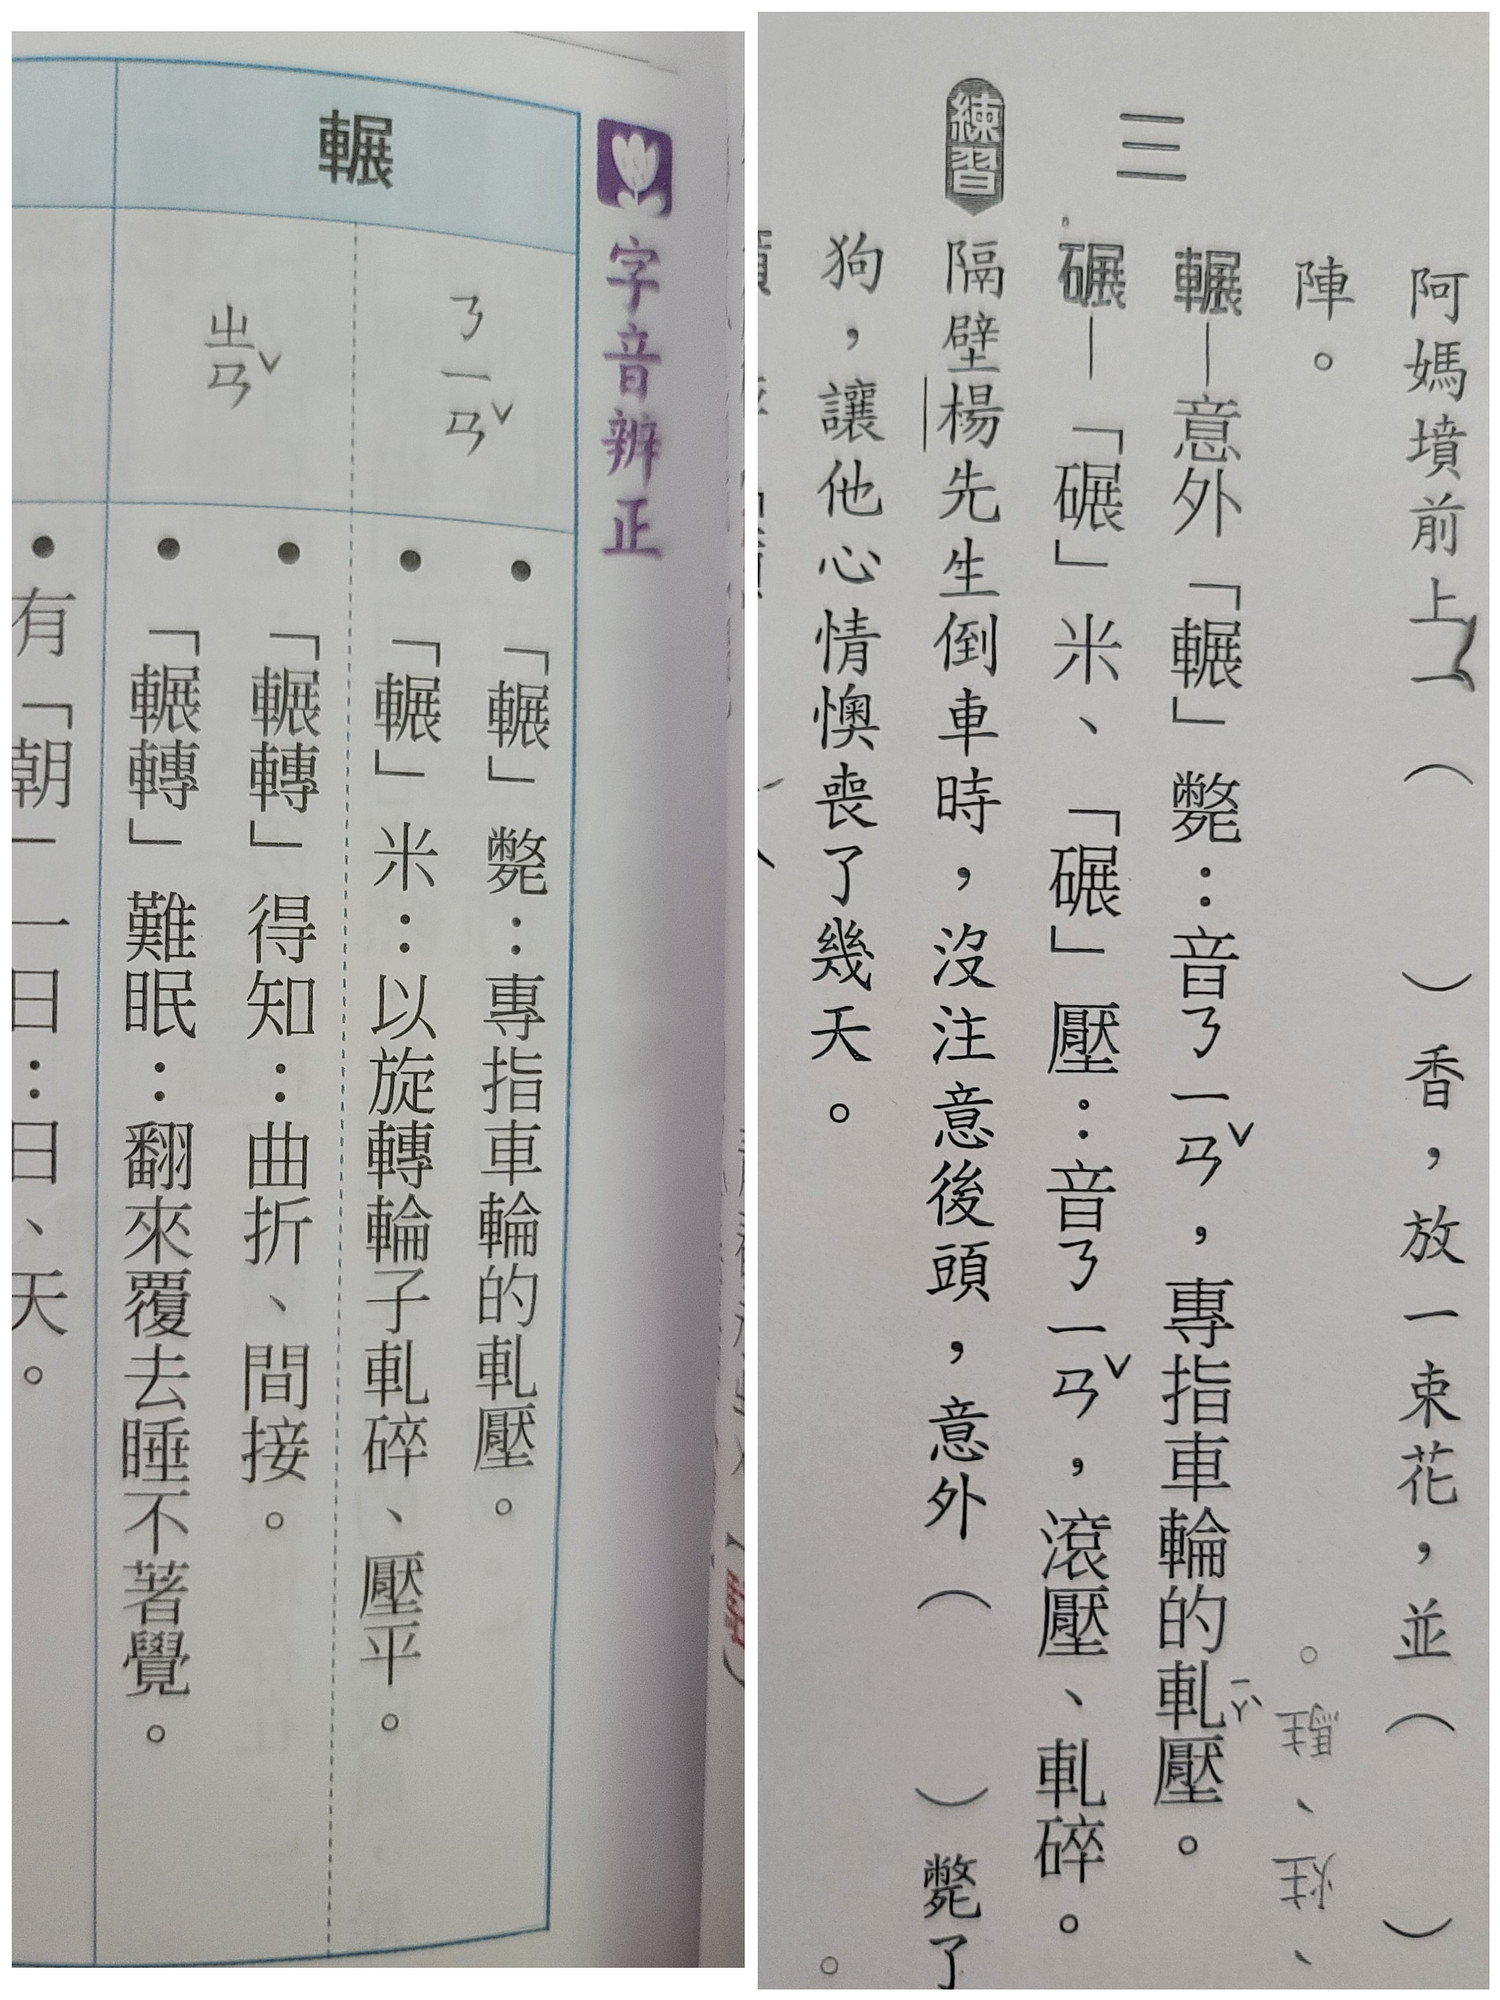 字音辨正
輾
ㄋㄧㄢˇ
「輾」斃：專指車輪的軋壓。
「輾」米：以旋轉輪子軋碎、壓平。
ㄓㄢˇ
「輾轉」得知：曲折、間接。
「輾轉」難眠：翻來覆去睡不著覺。
有「朝」一日：日、天。
阿媽墳前上一（　　）香，放一束花，並（　　）
陣。
炷、駐。
三
輾—意外「輾」斃：音ㄋㄧㄢˇ，專指車輪的軋ㄧㄚˋ壓。
碾—「碾」米、「碾」壓：音ㄋㄧㄢˇ，滾壓、軋碎。
練習
隔壁楊先生倒車時，沒注意後頭，意外（　　）斃了
狗，讓他心情懊喪了幾天。